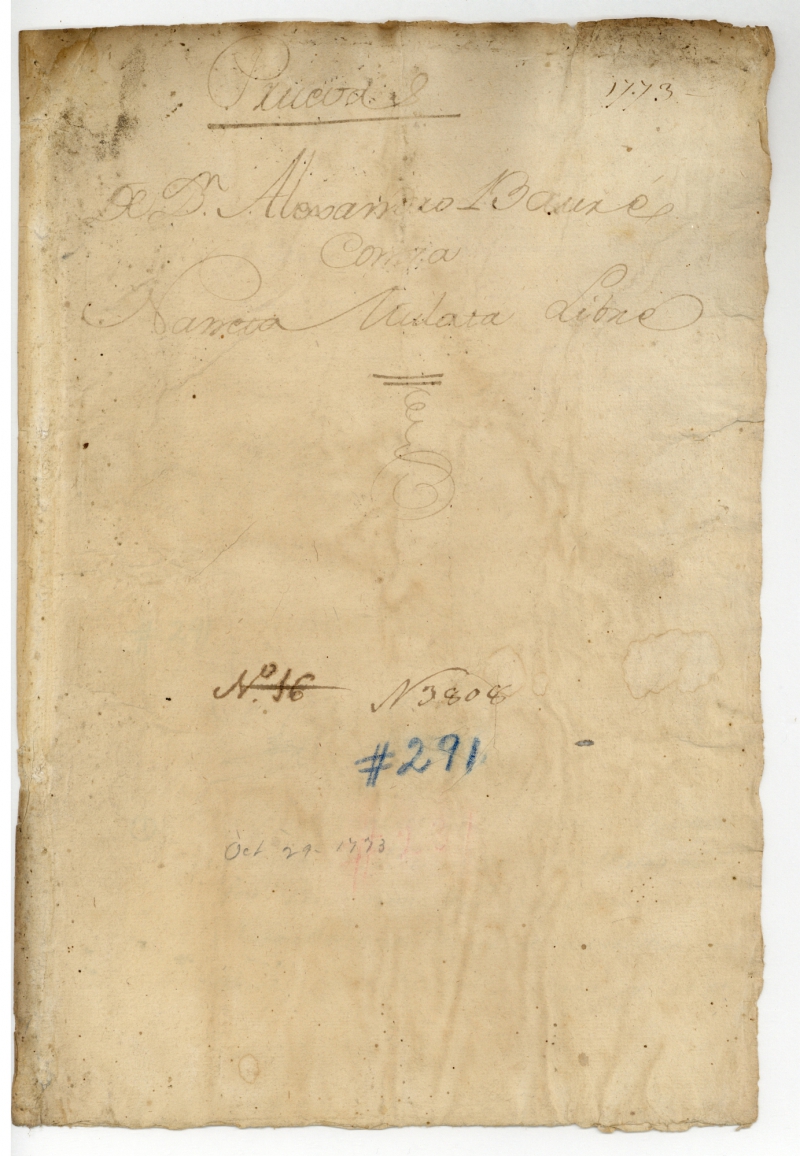 Pruevas 1773
De Dn. Alexandro Bauré
Contra
Naneta Mulata Libre
No. 16 N 3808
#291
Oct 29 - 1773